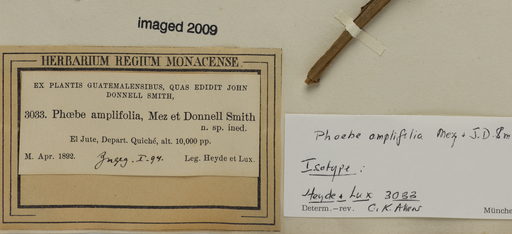 imaged 2009
HERBARIUM REGIUM MONACENSE.
EX PLANTIS GUATEMALENSIBUS, QUAS EDIDIT JOHN
DONNELL SMITH,
3033. Phœbe amplifolia, Mez et Donnell Smith
n. sp. ined.
El Jute, Depart. Quiché, alt. 10,000 pp.
M. Apr. 1892. Leg. Heyde et Lux.
Phoebe amplifolia Mez + J.D. Sm
Isotype:
Heyde + Lux 3033
Determ.–rev. C.K. Allen
Münche